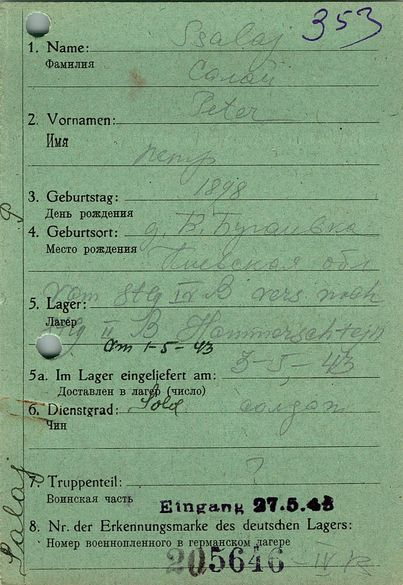 353
1. Name: Ssalaj
Фамилия Салай
Peter
2. Vornamen:
Имя
Петр
3. Geburtstag: 1898
День рождения
4. Geburtsort: д. В. Бугаевка
Место рождения
Киевская обл
Vom Stlg IV B vers. nach
5. Lager:
Лагер
Stlg II B Hammerschtejn
Am 1-5-43
3-5-43
5a. Im Lager eingeliefert am:
Доставлен в лагер (число)
6. Dienstgrad: Sold солдат
Чин
7. Truppenteil: ?
Воинская часть
Eingang 27.5.43
8. Nr. der Erkennungsmarke des deutschen Lagers:
Номер военнопленного в германском лагере
205646 - IV B
Salaj P